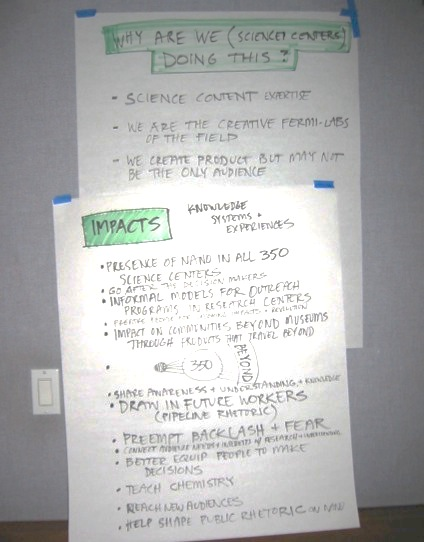 WHY ARE WE (SCIENCE CENTERS)
DOING THIS?
- SCIENCE CONTENT EXPERTISE
- WE ARE THE CREATIVE FERMI-LABS
OF THE FIELD
- WE CREATE PRODUCT BUT MAY NOT
BE THE ONLY AUDIENCE
IMPACTS
KNOWLEDGE
SYSTEMS +
EXPERIENCES
• PRESENCE OF NANO IN ALL 350
SCIENCE CENTERS
• GO AFTER THE DECISION MAKERS
• INFORMAL MODELS FOR OUTREACH
PROGRAMS IN RESEARCH CENTERS
• PREPARE PEOPLE FOR COMING IMPACTS + REVOLUTION
• IMPACT ON COMMUNITIES BEYOND MUSEUMS
THROUGH PRODUCTS THAT TRAVEL BEYOND
• 350 BEYOND
• SHARE AWARENESS + UNDERSTANDING + KNOWLEDGE
• DRAW IN FUTURE WORKERS
(PIPELINE RHETORIC)
• PREEMPT BACKLASH + FEAR
• CONNECT AUDIENCE NEEDS + INTERESTS W/ RESEARCH +
• BETTER EQUIP PEOPLE TO MAKE
DECISIONS
• TEACH CHEMISTRY
• REACH NEW AUDIENCES
• HELP SHAPE PUBLIC RHETORIC ON NANO